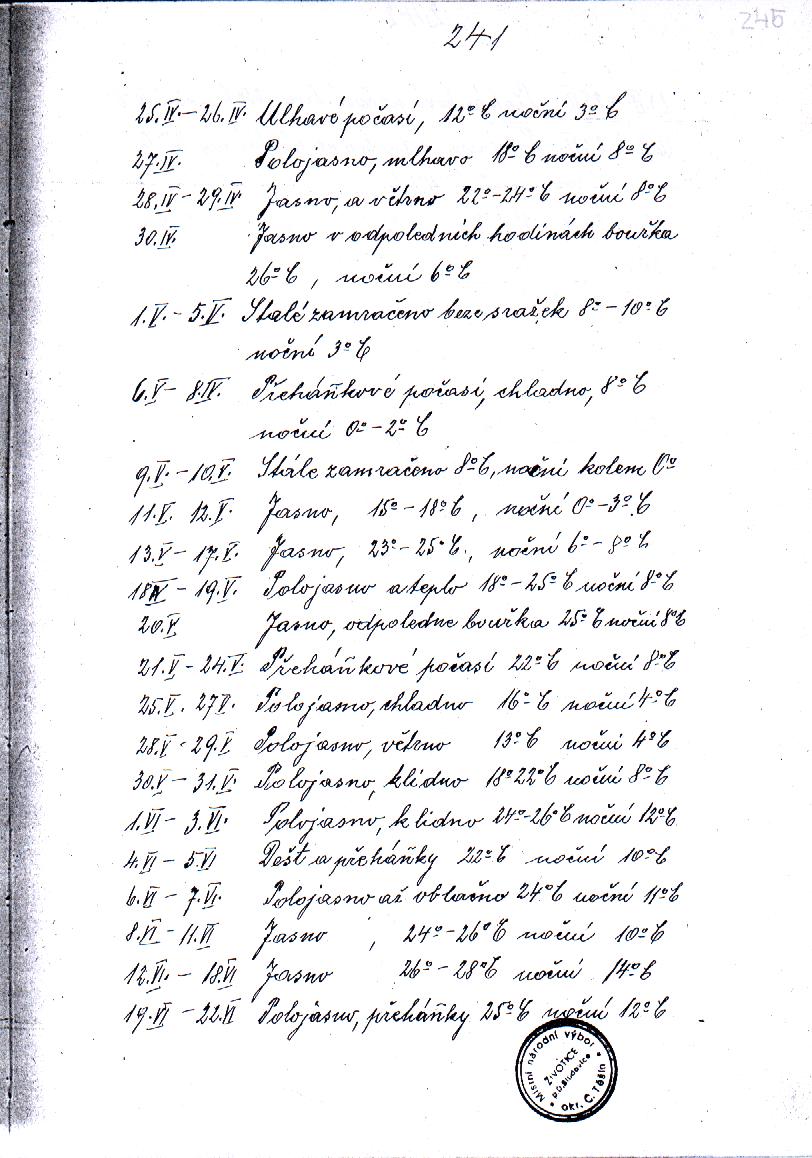 241
245
25.IV.-26.IV. Mlhavé počasí, 12°C noční 3°C
27.IV. Polojasno, mlhavo 18°C noční 8°C
28.IV-29.IV. Jasno, a větrno 22°-24°C noční 8°C
30.IV. Jasno v odpoledních hodinách bouřka
26°C, noční 6°C
1.V.-5.V. Stálé zamračeno beze sražek 8°-10°C
noční 3°C
6.V-8.IV. Přeháňkové počasí, chladno, 8°C
noční 0°-2°C
9.V.-10.V. Stále zamračeno 8°C, noční kolem 0°
11.V. 12.V. Jasno, 15°-18°C, noční 0°-3°C
13.V-17.V. Jasno, 23°-25°C, noční 6°-8°C
18V-19.V. Polojasno a teplo 18°-25°C noční 8°C
20.V Jasno, odpoledne bouřka 25°C noční 8°C
21.V-24.V. Přeháňkové počasí 22°C noční 8°C
25.V. 27V. Polojasno, chladno 16°C noční 4°C
28.V-29.V Polojasno, větrno 13°C noční 4°C
30.V-31.V. Polojasno, klidno 18°22°C noční 8°C
1.VI-3.VI. Polojasno, klidno 24°-26°C noční 12°C
4.VI-5.VI Déšť a přeháňky 22°C noční 10°C
6.VI-7.VI. Polojasno až oblačno 24°C noční 11°C
8.VI-11.VI Jasno, 24°-26°C noční 10°C
12.VI.-18.VI Jasno 26°-28°C noční 14°C
19.VI-22.VI Polojasno, přeháňky 25°C noční 12°C
Místní národní výbor
ŽIVOTICE
p.D.Bludovice
okr. Č. Těšín